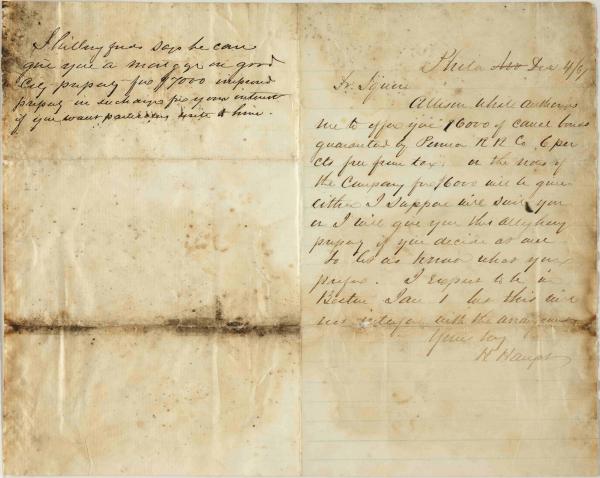 says he can
give you a mortgage on good
City property for $7000 improved
property in exchange for your interest
if you want particulars write to him.
Phila Dec 4/67
Dr. Squire
Allison White authorizes
me to offer you $6000 of canal bonds
guaranteed by Penna R R Co 6 per
cts free from tax. or the note of
the Company for $6000 will be given
either I suppose will suit you
or I will give you the Allegheny
property if you decide at once
to let us know what you
prefer. I expect to be in
Boston Jan 1 but this will
not interfere with the arrangement
Yours truly
H Haupt